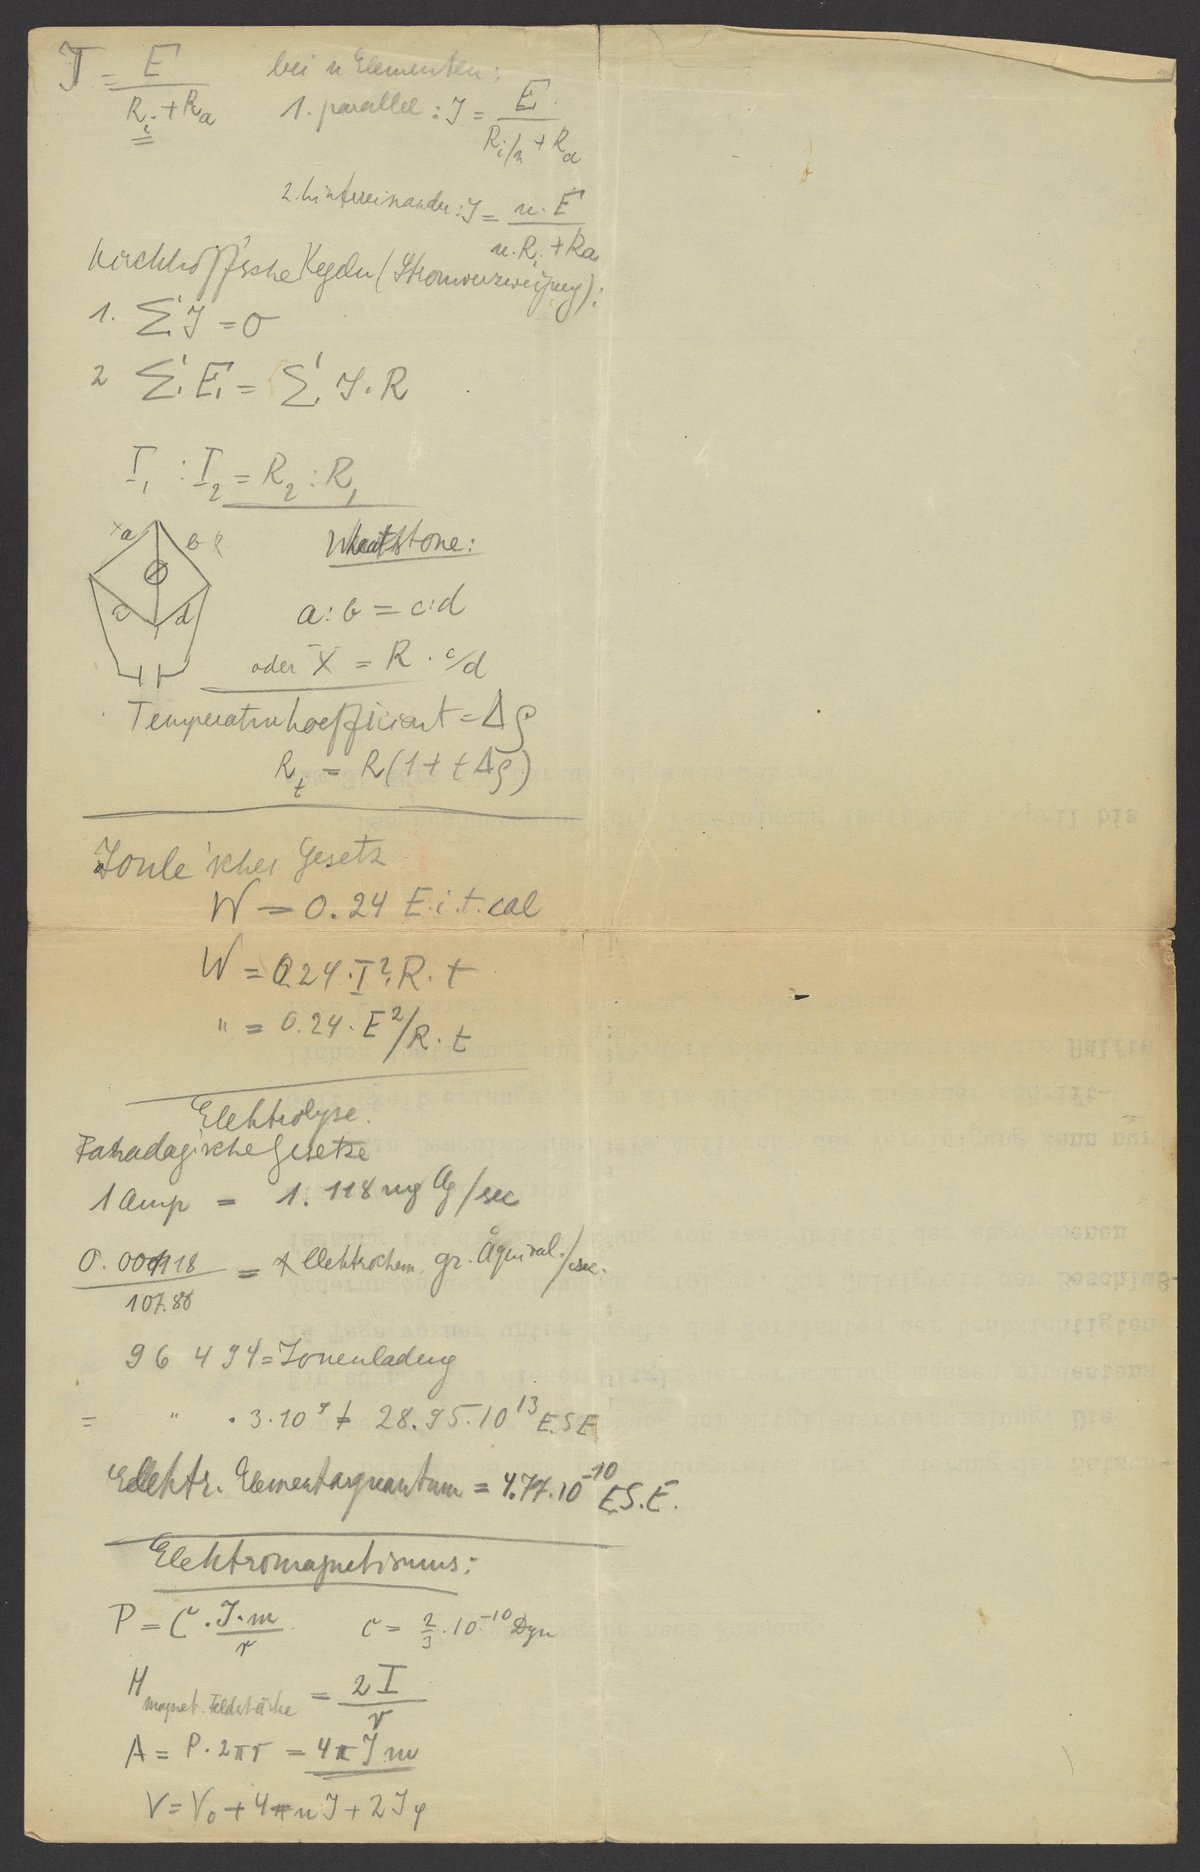 J = E / (R_i + R_a)
bei n Elementen:
1. parallel: J = E / (R_i/n + R_a)
2. hintereinander: J = n·E / (n·R_i + R_a)
Kirchhoff'sche Regeln (Stromverzweigung):
1. Σ J = 0
2 Σ E = Σ J·R
I_1 : I_2 = R_2 : R_1
x a b R
c d
Wheatstone:
a : b = c : d
oder X = R · c/d
Temperaturkoeffizient = Δρ
R_t = R(1 + t Δρ)
Joule'sches Gesetz
W = 0.24 E·i·t·cal
W = 0.24·I²·R·t
" = 0.24·E²/R·t
Elektrolyse.
Faradayische Gesetze
1 Amp = 1.118 mg Ag/sec
0.001118 / 107.88 = elektrochem. gr. Äquival./sec.
96 494 = Ionenladung
= " · 3·10⁹ = 28.95·10¹³ E.S.E
Elektr. Elementarquantum = 4.77·10⁻¹⁰ E.S.E.
Elektromagnetismus:
P = C · J·m / r C = 2/3 · 10⁻¹⁰ Dyn
H magnet. Feldstärke = 2 I / r
A = P·2πr = 4π J m
V = V_0 + 4π n J + 2 J φ